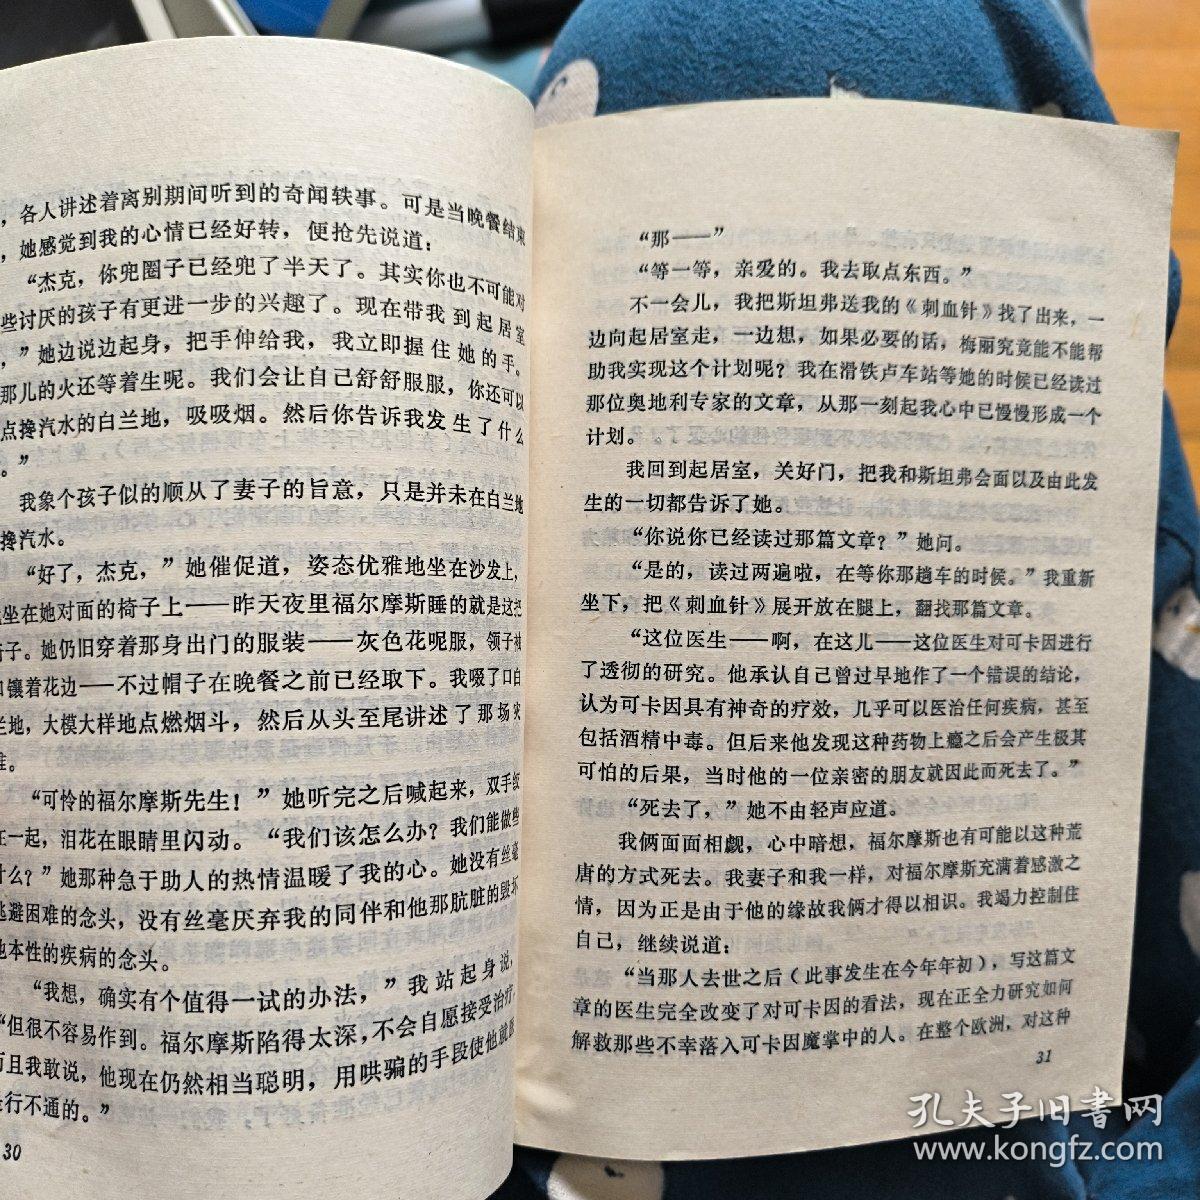 ，各人讲述着离别期间听到的奇闻轶事。可是当晚餐结束
，她感觉到我的心情已经好转，便抢先说道：
“杰克，你兜圈子已经兜了半天了。其实你也不可能对
些讨厌的孩子有更进一步的兴趣了。现在带我到起居室
，”她边说边起身，把手伸给我，我立即握住她的手。
那儿的火还等着生呢。我们会让自己舒舒服服，你还可以
点搀汽水的白兰地，吸吸烟。然后你告诉我发生了什么
。”
我象个孩子似的顺从了妻子的旨意，只是并未在白兰地
搀汽水。
“好了，杰克，”她催促道，姿态优雅地坐在沙发上，
坐在她对面的椅子上——昨天夜里福尔摩斯睡的就是这把
子。她仍旧穿着那身出门的服装——灰色花呢服，领子袖
口镶着花边——不过帽子在晚餐之前已经取下。我啜了口白
兰地，大模大样地点燃烟斗，然后从头至尾讲述了那场灾
难。
“可怜的福尔摩斯先生！”她听完之后喊起来，双手绞
在一起，泪花在眼睛里闪动。“我们该怎么办？我们能做些
什么？”她那种急于助人的热情温暖了我的心。她没有丝毫
逃避困难的念头，没有丝毫厌弃我的同伴和他那肮脏的毁坏
他本性的疾病的念头。
“我想，确实有个值得一试的办法，”我站起身说，
“但很不容易作到。福尔摩斯陷得太深，不会自愿接受治疗，
而且我敢说，他现在仍然相当聪明，用哄骗的手段使他就范
是行不通的。”
30
“那——”
“等一等，亲爱的。我去取点东西。”
不一会儿，我把斯坦弗送我的《刺血针》找了出来，一
边向起居室走，一边想，如果必要的话，梅丽究竟能不能帮
助我实现这个计划呢？我在滑铁卢车站等她的时候已经读过
那位奥地利专家的文章，从那一刻起我心中已慢慢形成一个
计划。
我回到起居室，关好门，把我和斯坦弗会面以及由此发
生的一切都告诉了她。
“你说你已经读过那篇文章？”她问。
“是的，读过两遍啦，在等你那趟车的时候。”我重新
坐下，把《刺血针》展开放在腿上，翻找那篇文章。
“这位医生——啊，在这儿——这位医生对可卡因进行
了透彻的研究。他承认自己曾过早地作了一个错误的结论，
认为可卡因具有神奇的疗效，几乎可以医治任何疾病，甚至
包括酒精中毒。但后来他发现这种药物上瘾之后会产生极其
可怕的后果，当时他的一位亲密的朋友就因此而死去了。”
“死去了，”她不由轻声应道。
我俩面面相觑，心中暗想，福尔摩斯也有可能以这种荒
唐的方式死去。我妻子和我一样，对福尔摩斯充满着感激之
情，因为正是由于他的缘故我俩才得以相识。我竭力控制住
自己，继续说道：
“当那人去世之后（此事发生在今年年初），写这篇文
章的医生完全改变了对可卡因的看法，现在正全力研究如何
解救那些不幸落入可卡因魔掌中的人。在整个欧洲，对这种
31
孔夫子旧书网
www.kongfz.com